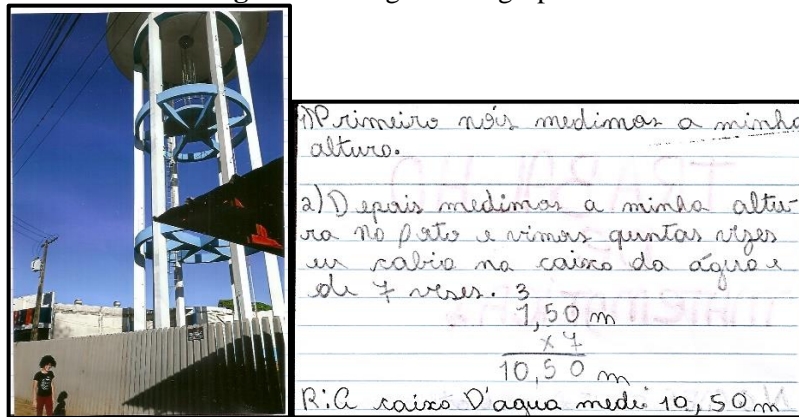 1) Primeiro nóis medimos a minha
altura.
2) Depois medimos a minha altu-
ra no foto e vimos quntas vezes
eu cabia na caixa da água e
di 7 veses.
3
1,50 m
x 7
10,50 m
R: A caixa D'agua medi 10,50 m